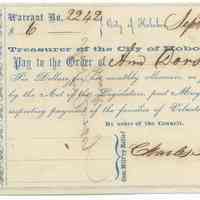 Warrant No. 2242
City of Hoboken, Sep
$ 6
Treasurer of the City of Hobo
Pay to the Order of Ann
Six Dollars for her monthly allowance, as
by the Act of the Legislature, past May
respecting payment of the families of Volunte
By order of the Council.
Com. Military Relief
Charles